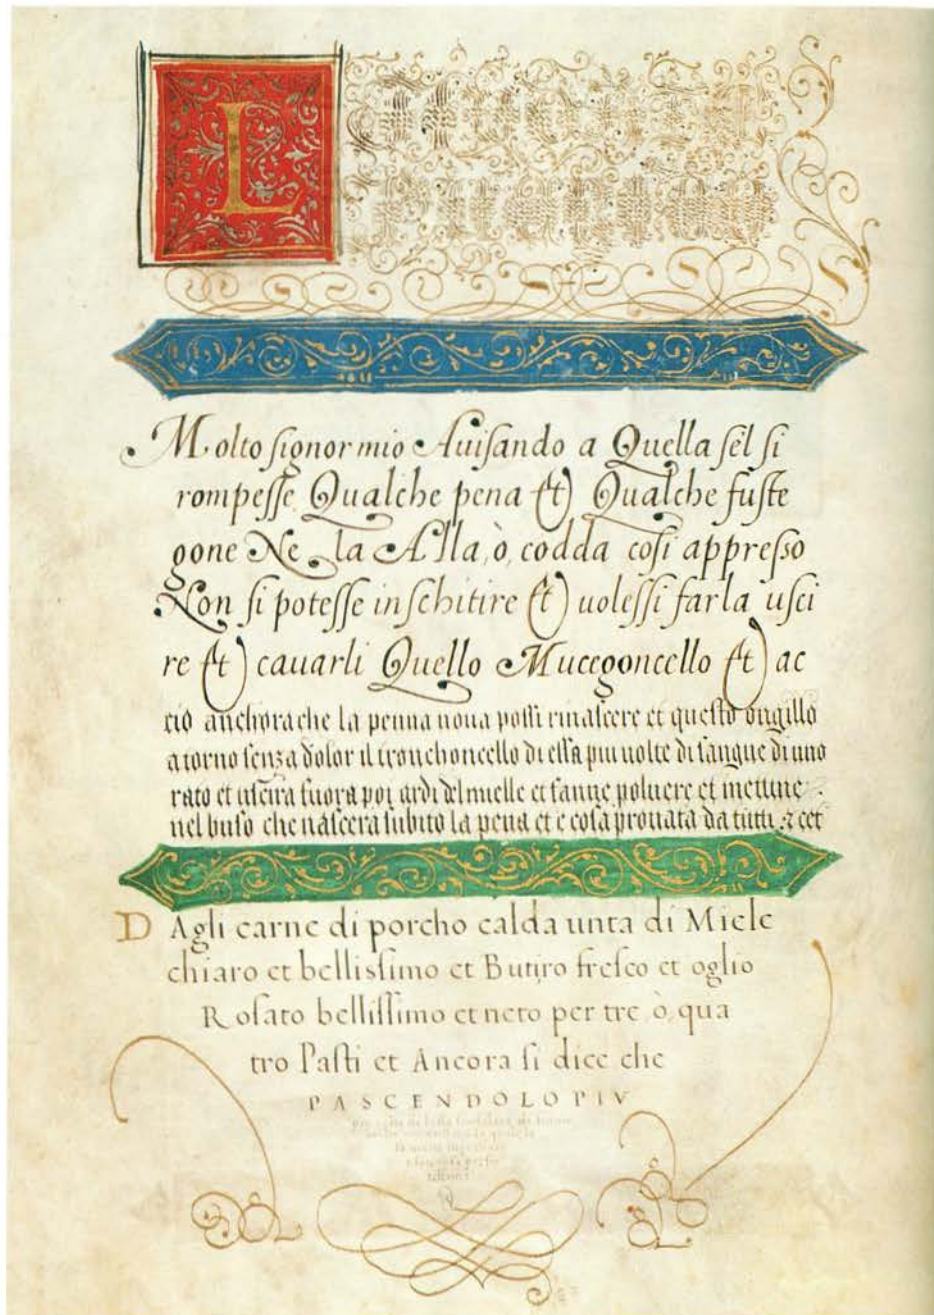 L
Molto ſignor mio Auiſando a Quella ſel ſi
rompeſſe Qualche pena et Qualche fuſte
gone Ne la Alla, ò, codda coſi appreſſo
Non ſi poteſſe inſchitire et uoleſſi farla uſci
re et cauarli Quello Mucegoncello et ac
ciò anchora che la penna noua poſſi rinaſcere et queſto ongillo
a torno ſenza dolor il tronchoncello di eſſa piu uolte di ſangue di uno
rato et uſcira fuora poi ardi del muelle et fanne poluere et mettine
nel buſo che naſcera ſubito la pena et e coſa prouata da tutti & cet
D Agli carne di porcho calda unta di Miele
chiaro et belliſſimo et Butiro freſco et oglio
Roſato belliſſimo et neto per tre ò, qua
tro Paſti et Ancora ſi dice che
PASCENDOLO PIV